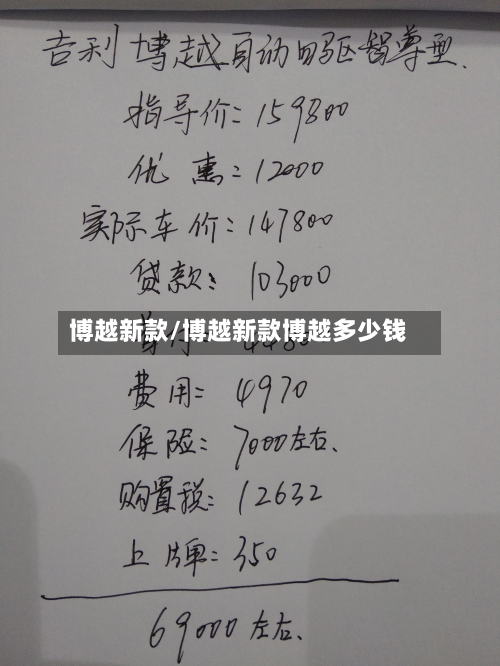 吉利博越自动四驱智尊型.
指导价:159800
优惠:12000
实际车价:147800
贷款:103000
博越新款/博越新款博越多少钱
费用:4970
保险:7000左右.
购置税:12632
上牌:350
69000左右.